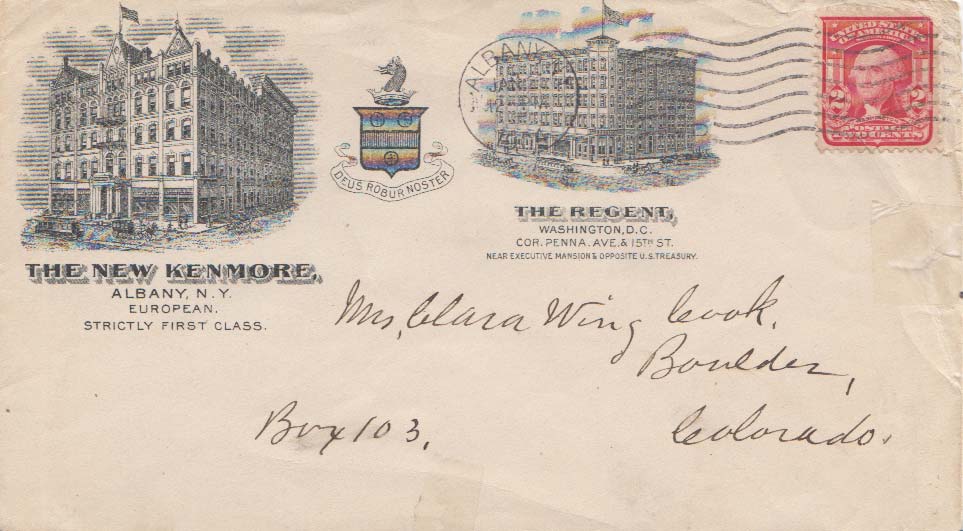 THE NEW KENMORE,
ALBANY, N.Y.
EUROPEAN.
STRICTLY FIRST CLASS.
DEUS ROBUR NOSTER
THE REGENT,
WASHINGTON, D.C.
COR. PENNA. AVE. & 15TH ST.
NEAR EXECUTIVE MANSION & OPPOSITE U.S. TREASURY.
ALBANY
JAN
UNITED STATES
OF AMERICA
2 2
POSTAGE
TWO CENTS
Mrs, Clara Wing Cook,
Boulder,
Box 103,
Colorado.